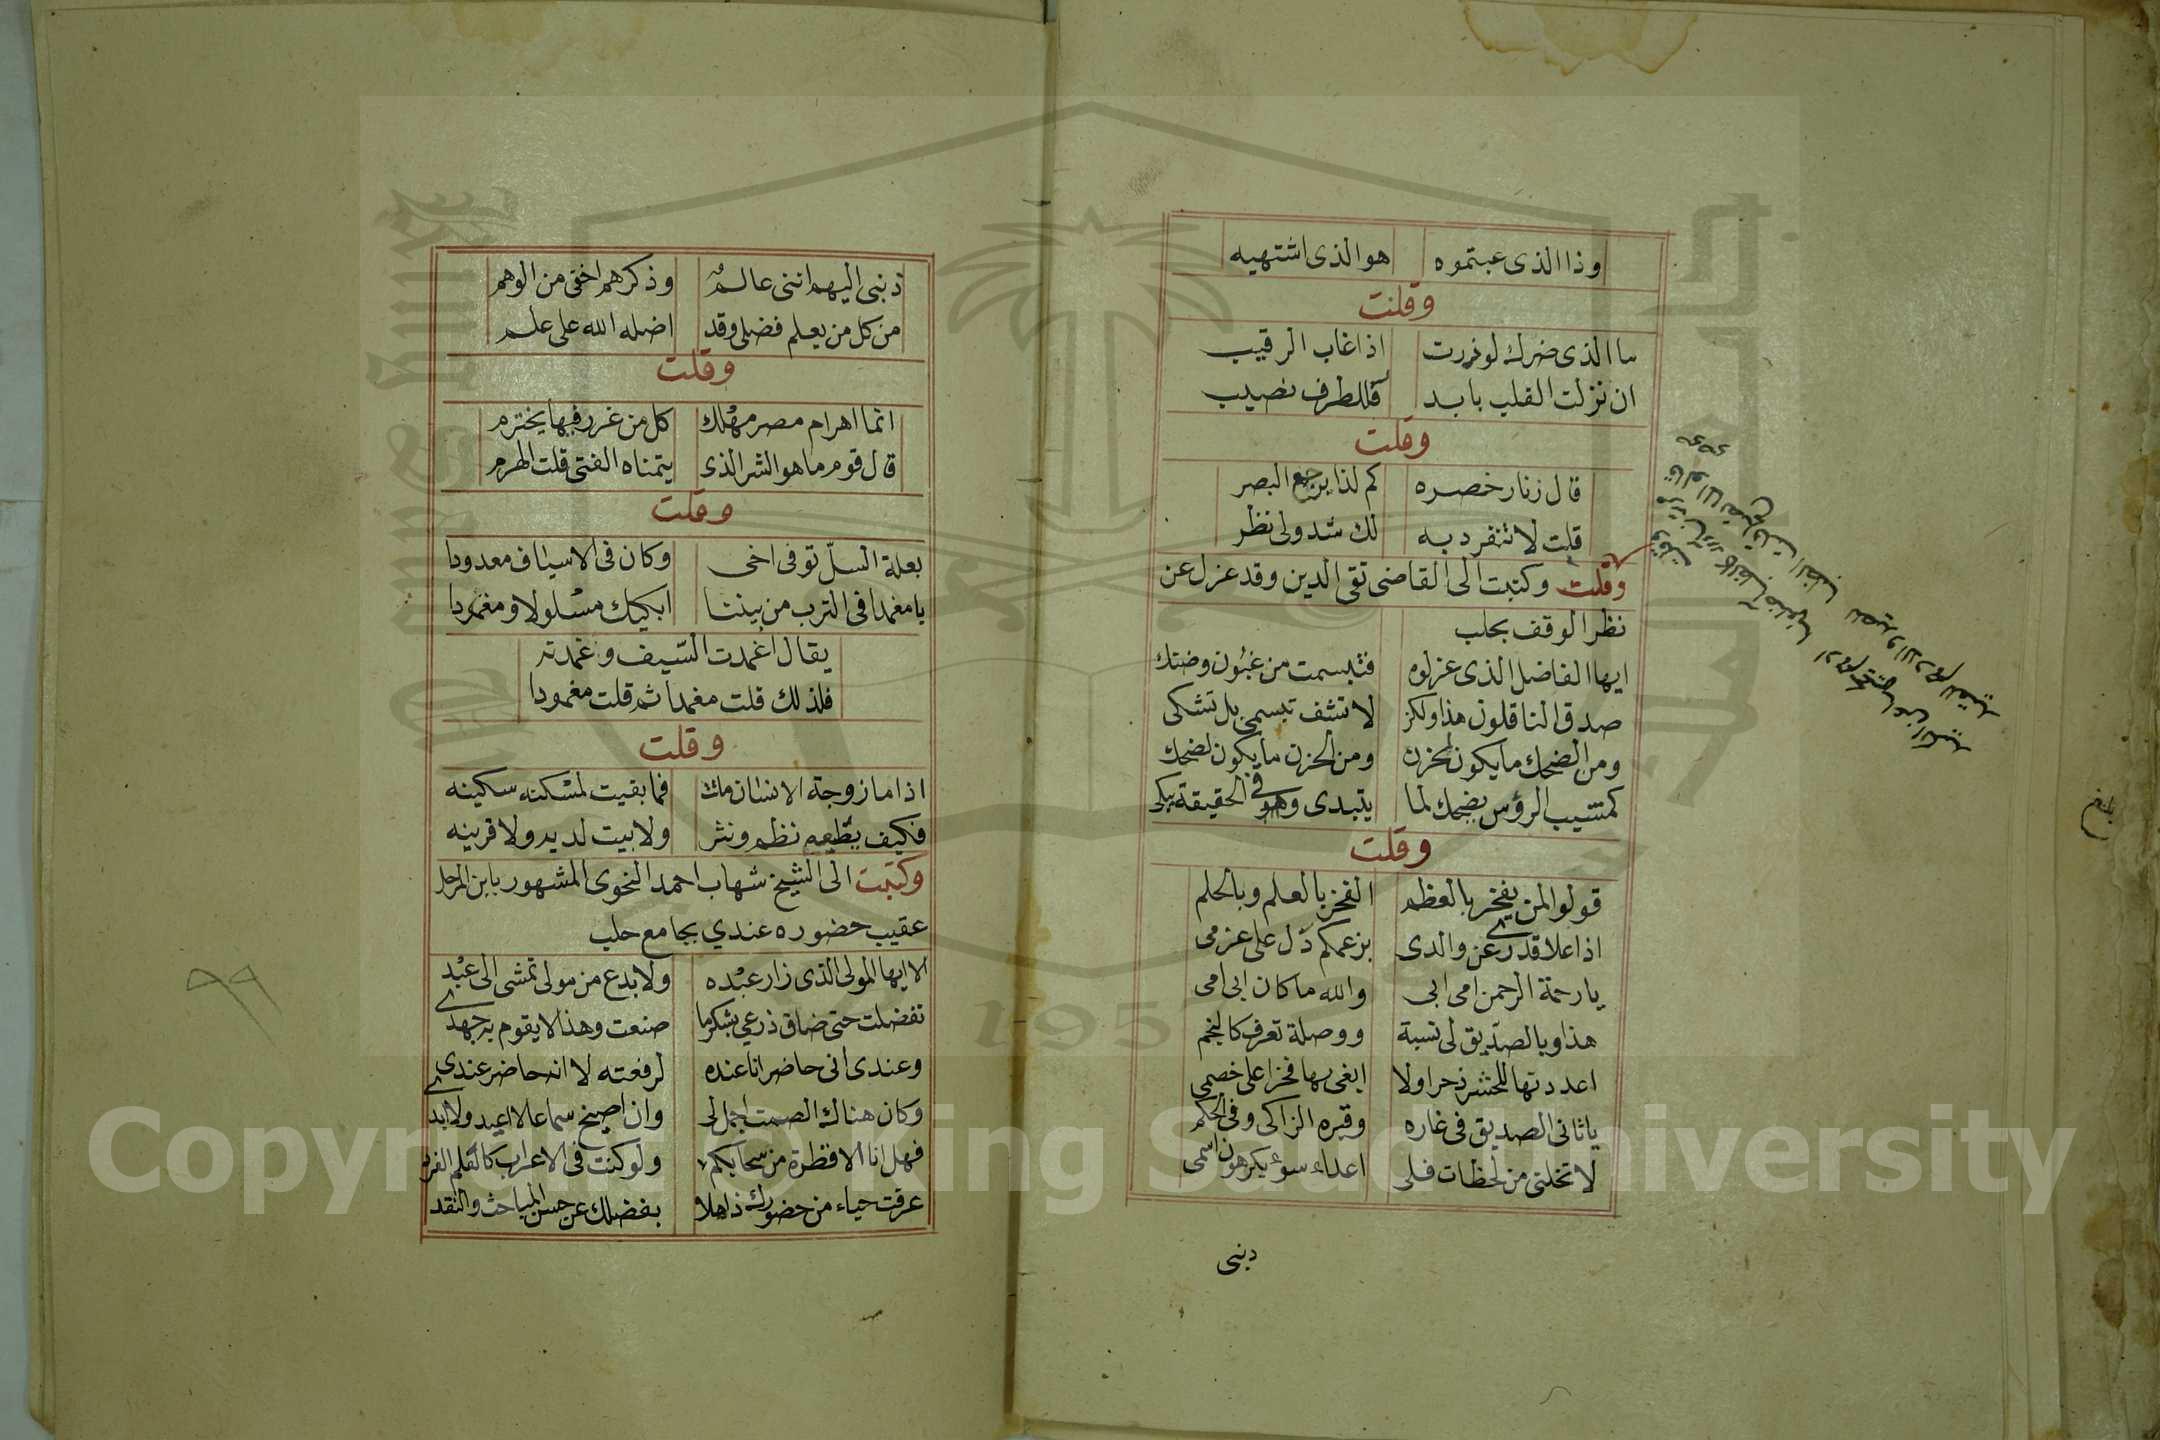 وذا الذى عبتموه هو الذى اشتهيه
وقلت
ما الذى ضرك لو زرت اذا غاب الرقيب
ان نزلت القلب بابد فللطرف نصيب
وقلت
قال زنار خصره كم لذا يرجع البصر
قلت لا تنفرد به لك شد ولى نظر
وقلت وكتبت الى القاضى تقى الدين وقد عزل عن
نظر الوقف بحلب
ايها الفاضل الذى عزلوه فتبسمت من غبون وضنك
صدق الناقلون هذا ولكن لا تشف تبسمى بل تشكى
ومن الضحك ما يكون لحزن ومن الحزن ما يكون لضحك
كمشيب الرؤس يضحك لما يتبدى وهو فى الحقيقة يبكى
وقلت
قولوا لمن يفخر بالعظم الفخر بالعلم وبالحلم
اذا علا قدرى عن والدى بزعمكم دل على عزمى
يا رحمة الرحمن امى ابى والله ما كان ابى امى
هذا وبالصديق لى نسبة ووصلة تعرف كالنجم
اعددتها للحشر ذخرا ولا ابغى بها فخرا على خصمى
يا ثانى الصديق فى غاره وقبره الزاكى وفى الحكم
لا تخلنى من لحظات فلى اعداء سوء يكرهون اسمى
ذنبى
ذنبى اليهم اننى عالم وذكرهم اخفى من الوهم
من كل من يعلم فضلى وقد اضله الله على علم
وقلت
انما اهرام مصر مهلك كل من غرر فيها يخترم
قال قوم ما هو الشر الذى يتمناه الفتى قلت الهرم
وقلت
بعلة السل توفى اخى وكان فى الاسياف معدودا
يا مغمدا فى الترب من بيننا ابكيك مسلولا ومغمودا
يقال اغمدت السيف وغمدته
فلذلك قلت مغمدا ثم قلت مغمودا
وقلت
اذا ما زوجة الانسان ماتت فما بقيت لمسكنه سكينه
فكيف يطيعه نظم ونثر ولا بيت لديه ولا قرينه
وكتبت الى الشيخ شهاب احمد النحوى المشهور بابن المرحل
عقيب حضوره عندي بجامع حلب
الا ايها المولى الذى زار عبده ولا بدع من مولى تمشى الى عبد
تفضلت حتى ضاق ذرعي بشكر ما صنعت وهذا لا يقوم به جهدى
وعندى انى حاضر انا عنده لرفعته لا انه حاضر عندى
وكان هناك الصمت اجمل لى وان اصيخ سماعا لا اعيد ولا ابدى
فهل انا الا قطرة من سحابكم ولو كنت فى الاعراب كالعلم الفرد
عرقت حياء من حضورك ذاهلا بفضلك عن حسن المباحث والنقد
٩٩
بلغ
Copyright © King Saud University
1957